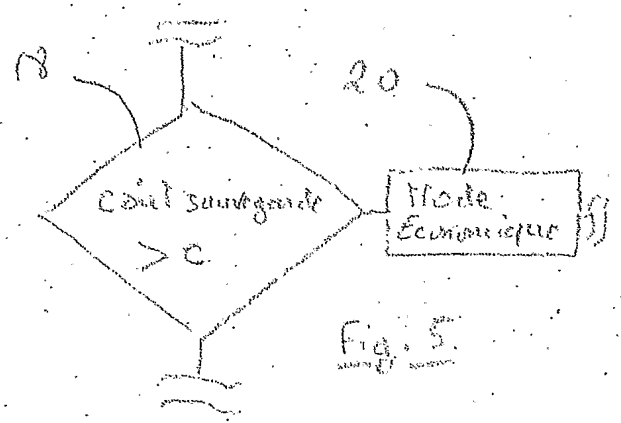 20
coût sauvegarde
> C
Mode
Économique
Fig. 5.